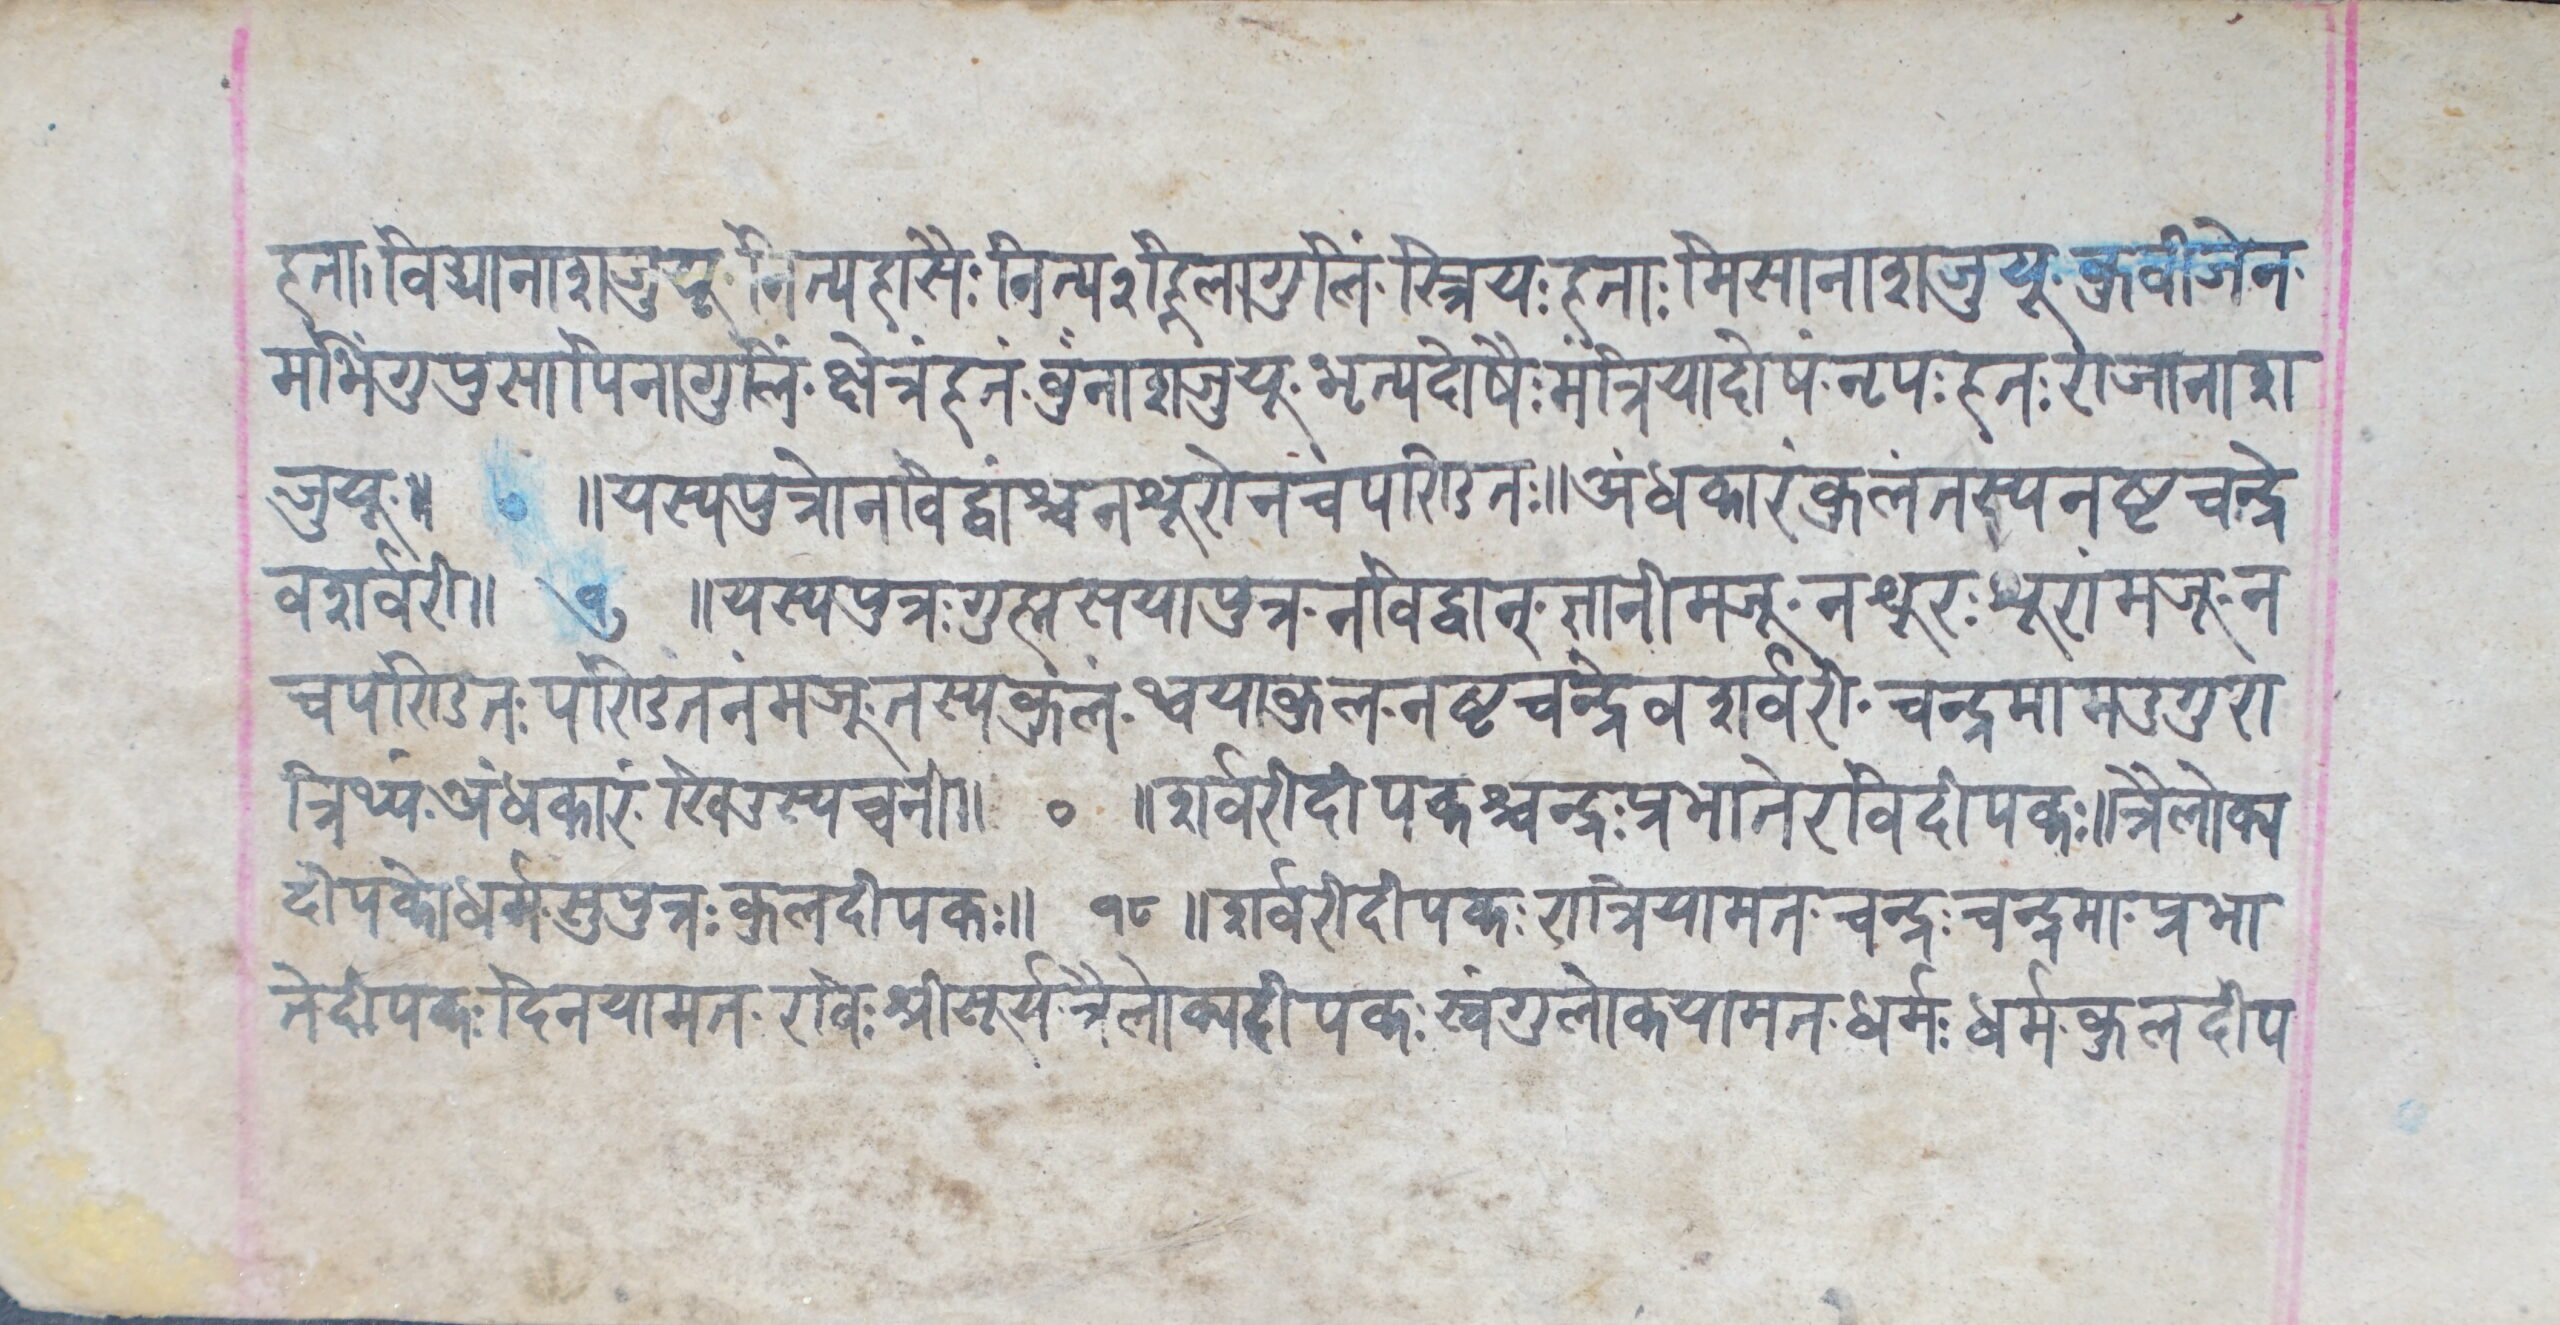 हता। विद्यानाशजुयू॰ नित्यहासैः नित्य२ह्रिलागुलिं॰ स्त्रियः हताः मिसानाशजुयू॰ कुबीजेन॰
मभिंगुपुसापिनागुलिं॰ क्षेत्रंहतं॰ बुंनाशजुयू॰ भृत्यदोषैः मंत्रियादोषं॰ नृपः हतः राजानाश
जुयू॰॥ ७ ॥यस्यपुत्रोनविद्वांश्चनशूरोनचपण्डितः॥अंधकारंकुलंतस्यनष्टचन्द्रे
वशर्वरी॥ १७ ॥यस्यपुत्रःगुह्मसयापुत्र॰नविद्वान्॰ज्ञानीमजू॰नशूरःशूरांमजू॰न
चपण्डितःपण्डितनंमजू॰तस्यकुलं॰थ्वयाकुल॰नष्टचन्द्रेवशर्वरी॰चन्द्रमामदुगुरा
त्रिथ्यं॰अंधकारं॰खिउंस्यच्वनी॥ ० ॥शर्वरीदीपकश्चन्द्रःप्रभातेरविदीपकः॥त्रैलोक्य
दीपकोधर्म॰सुपुत्रःकुलदीपकः॥ १८ ॥शर्वरीदीपकःरात्रियामत॰चन्द्रःचन्द्रमा॰प्रभा
तेदीपकःदिनयामत॰रविःश्रीसूर्य॰त्रैलोक्यदीपकःस्वंगुलोकयामत॰धर्मःधर्म॰कुलदीप